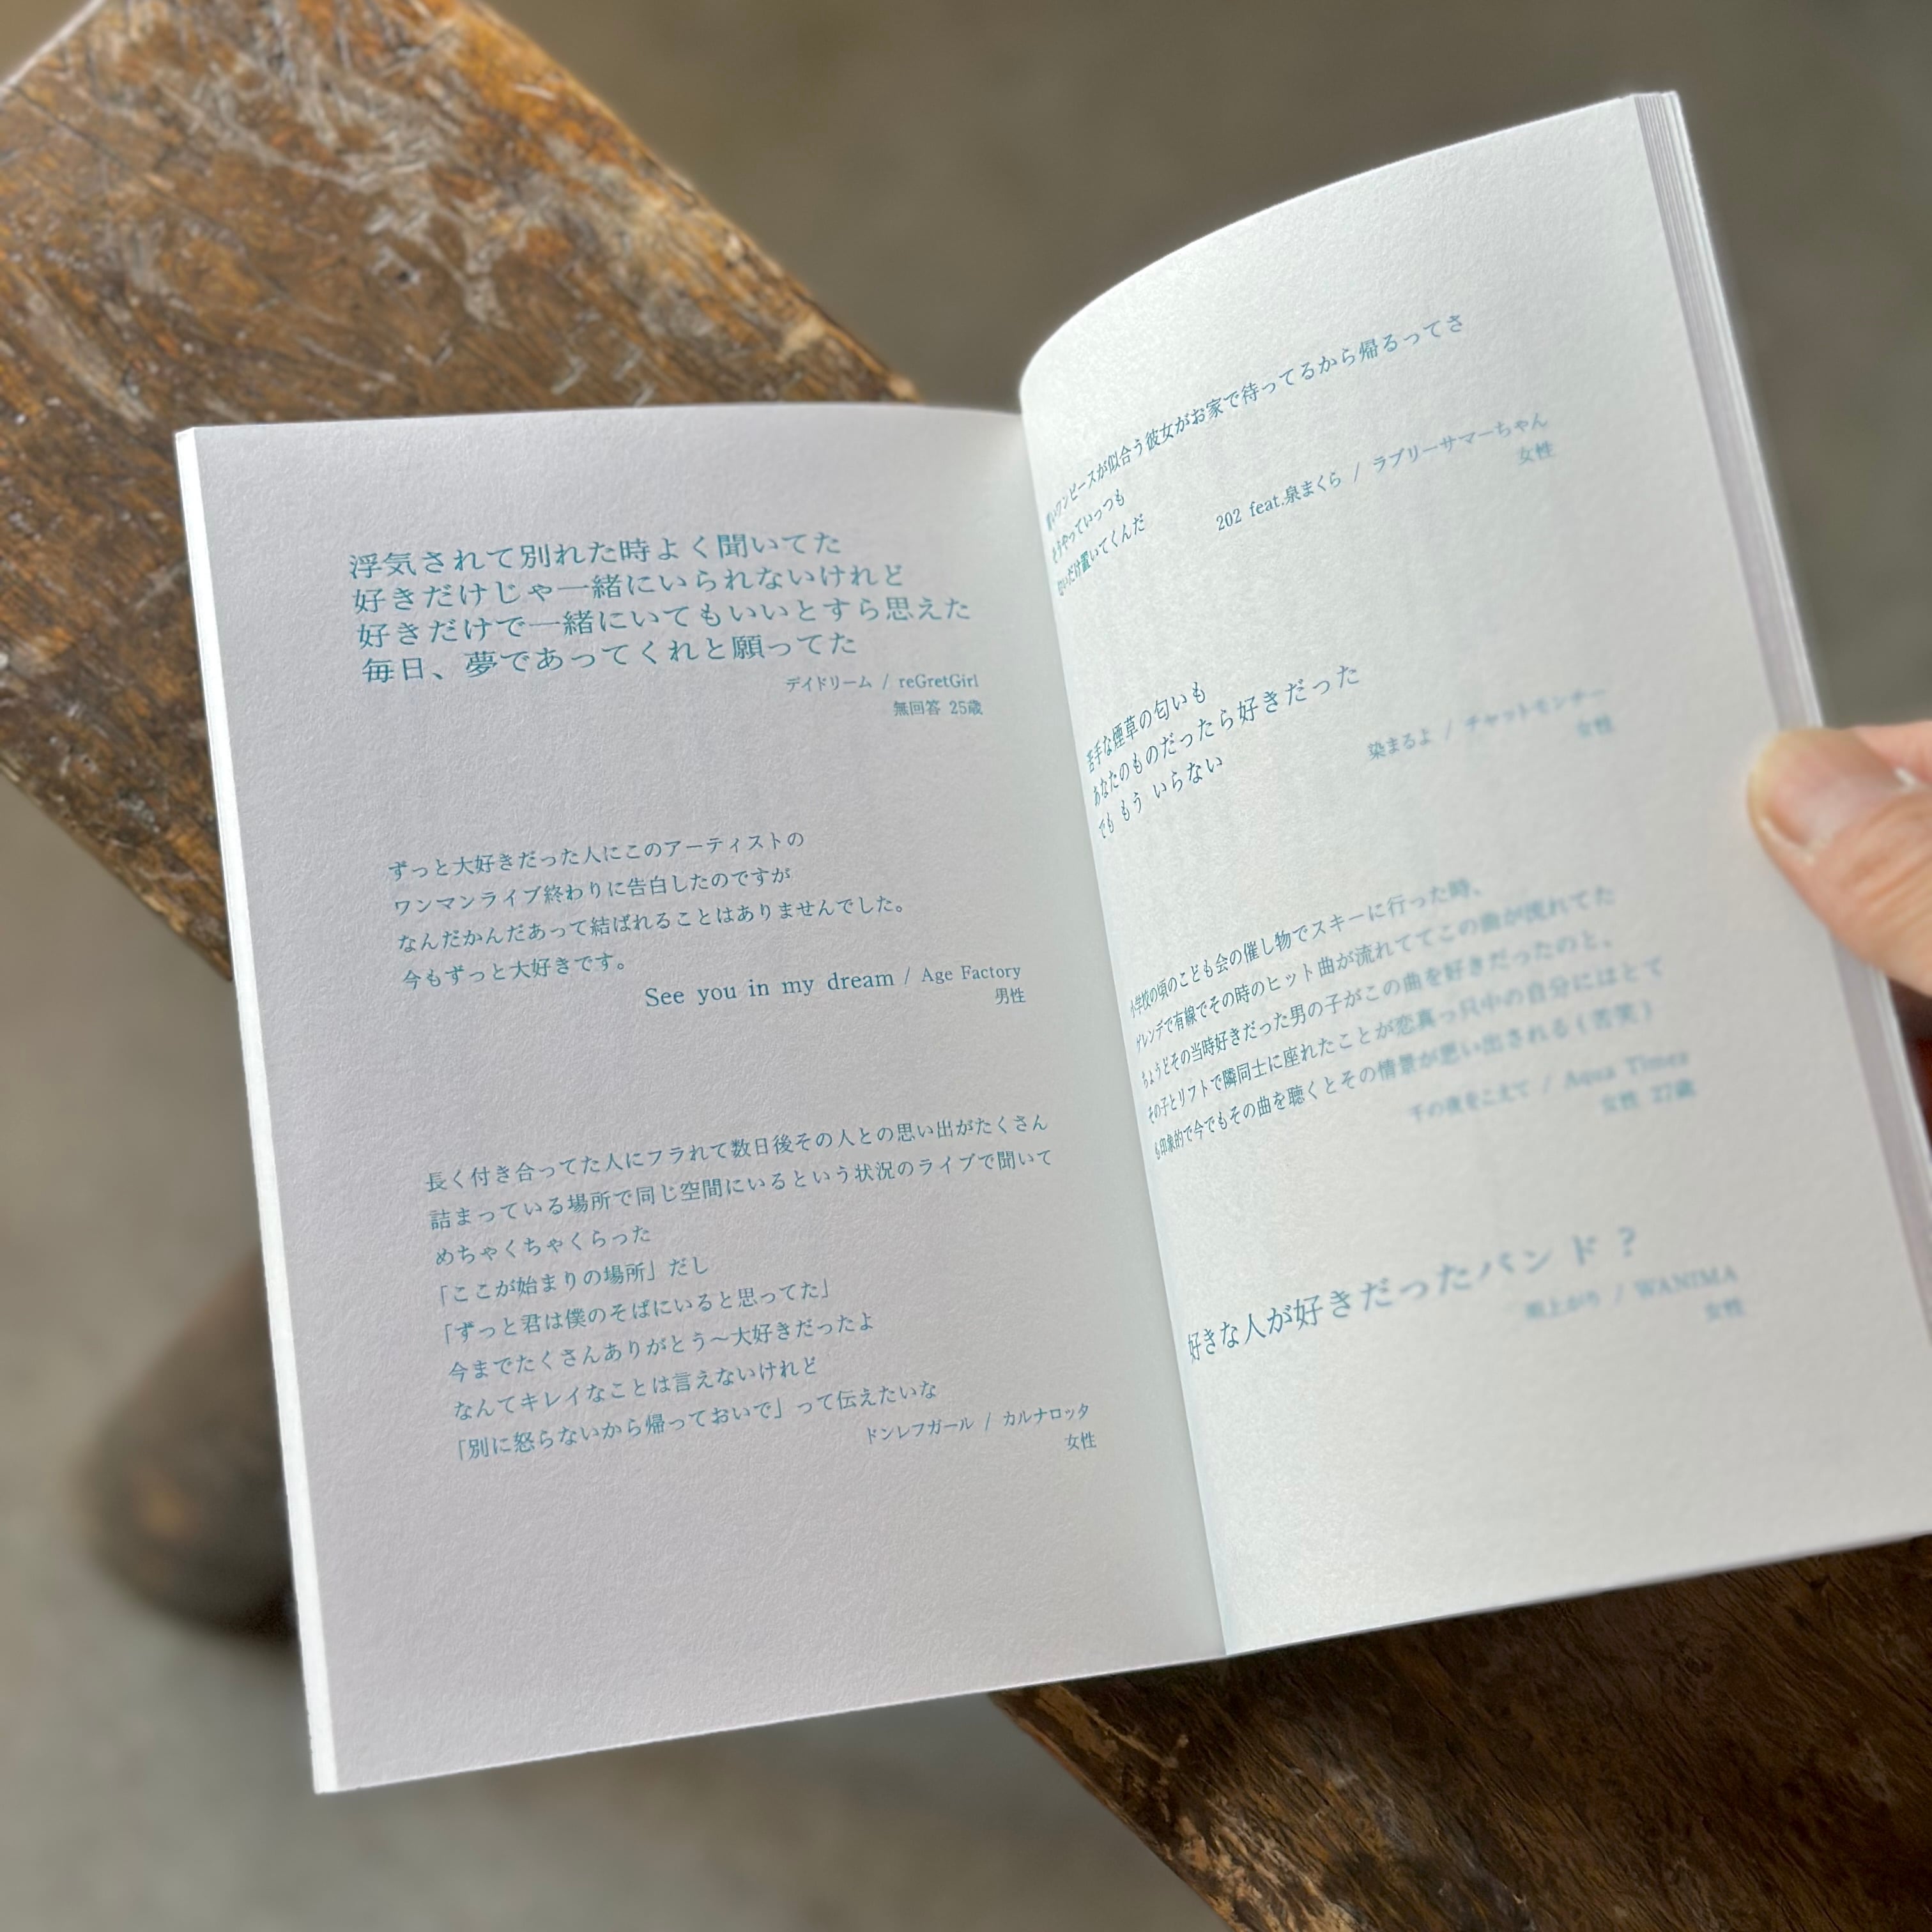 浮気されて別れた時よく聞いてた
好きだけじゃ一緒にいられないけれど
好きだけで一緒にいてもいいとすら思えた
毎日、夢であってくれと願ってた
デイドリーム / reGretGirl
無回答 25歳
ずっと大好きだった人にこのアーティストの
ワンマンライブ終わりに告白したのですが
なんだかんだあって結ばれることはありませんでした。
今もずっと大好きです。
See you in my dream / Age Factory
男性
長く付き合ってた人にフラれて数日後その人との思い出がたくさん
詰まっている場所で同じ空間にいるという状況のライブで聞いて
めちゃくちゃくらった
「ここが始まりの場所」だし
「ずっと君は僕のそばにいると思ってた」
今までたくさんありがとう〜大好きだったよ
なんてキレイなことは言えないけれど
「別に怒らないから帰っておいで」って伝えたいな
ドンレフガール / カルナロッタ
女性
ワンピースが似合う彼女がお家で待ってるから帰るってさ
そうやっていっつも
だけ置いてくんだ
202 feat.泉まくら / ラブリーサマーちゃん
女性
苦手な煙草の匂いも
あなたのものだったら好きだった
でも もう いらない
染まるよ / チャットモンチー
女性
小学校の頃のこども会の催し物でスキーに行った時、
ゲレンデで有線でその時のヒット曲が流れててこの曲が流れてた
ちょうどその当時好きだった男の子がこの曲を好きだったのと、
その子とリフトで隣同士に座れたことが恋真っ只中の自分にはとて
も印象的で今でもその曲を聴くとその情景が思い出される(苦笑)
千の夜をこえて / Aqua Timez
女性 27歳
好きな人が好きだったバンド?
雨上がり / WANIMA
女性